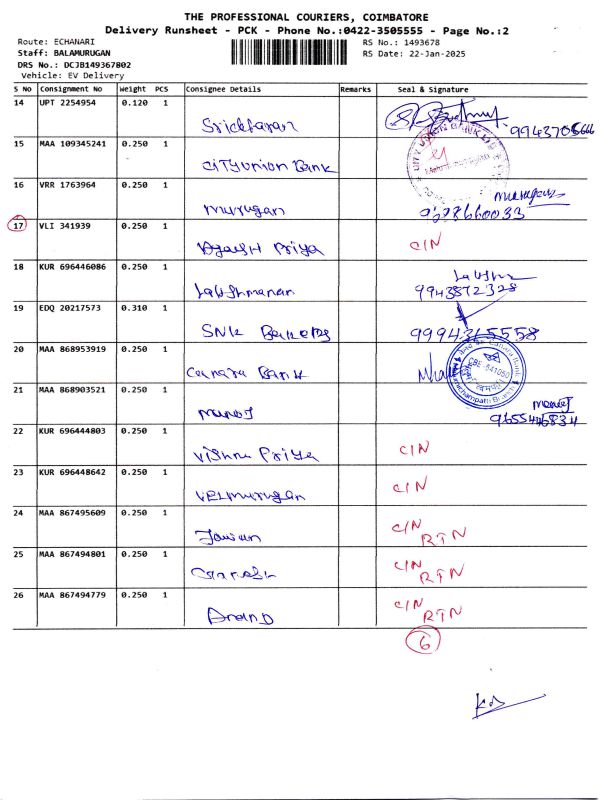 THE PROFESSIONAL COURIERS, COIMBATORE
Delivery Runsheet - PCK - Phone No.:0422-3505555 - Page No.:2
Route: ECHANARI
RS No.: 1493678
Staff: BALAMURUGAN
RS Date: 22-Jan-2025
DRS No.: DCJB149367802
Vehicle: EV Delivery
S No Consignment No Weight PCS Consignee Details Remarks Seal & Signature
14 UPT 2254954 0.120 1
Sridharan 9943706666
15 MAA 109345241 0.250 1
City Union Bank
16 VRR 1763964 0.250 1
Murugan
17 VLI 341939 0.250 1
Priya C/N
18 KUR 696446086 0.250 1
Lakshmanan 9943872328
19 EDQ 20217573 0.310 1
SNK Bakers 9994365558
20 MAA 868953919 0.250 1
Canara Bank
CBE-641050
21 MAA 868903521 0.250 1
Manoj Manoj
9655446834
22 KUR 696444803 0.250 1
Vishnu Priya C/N
23 KUR 696448642 0.250 1
Velmurugan C/N
24 MAA 867495609 0.250 1
C/N
RTN
25 MAA 867494801 0.250 1
Ganesh C/N
RTN
26 MAA 867494779 0.250 1
Anand C/N
RTN
6